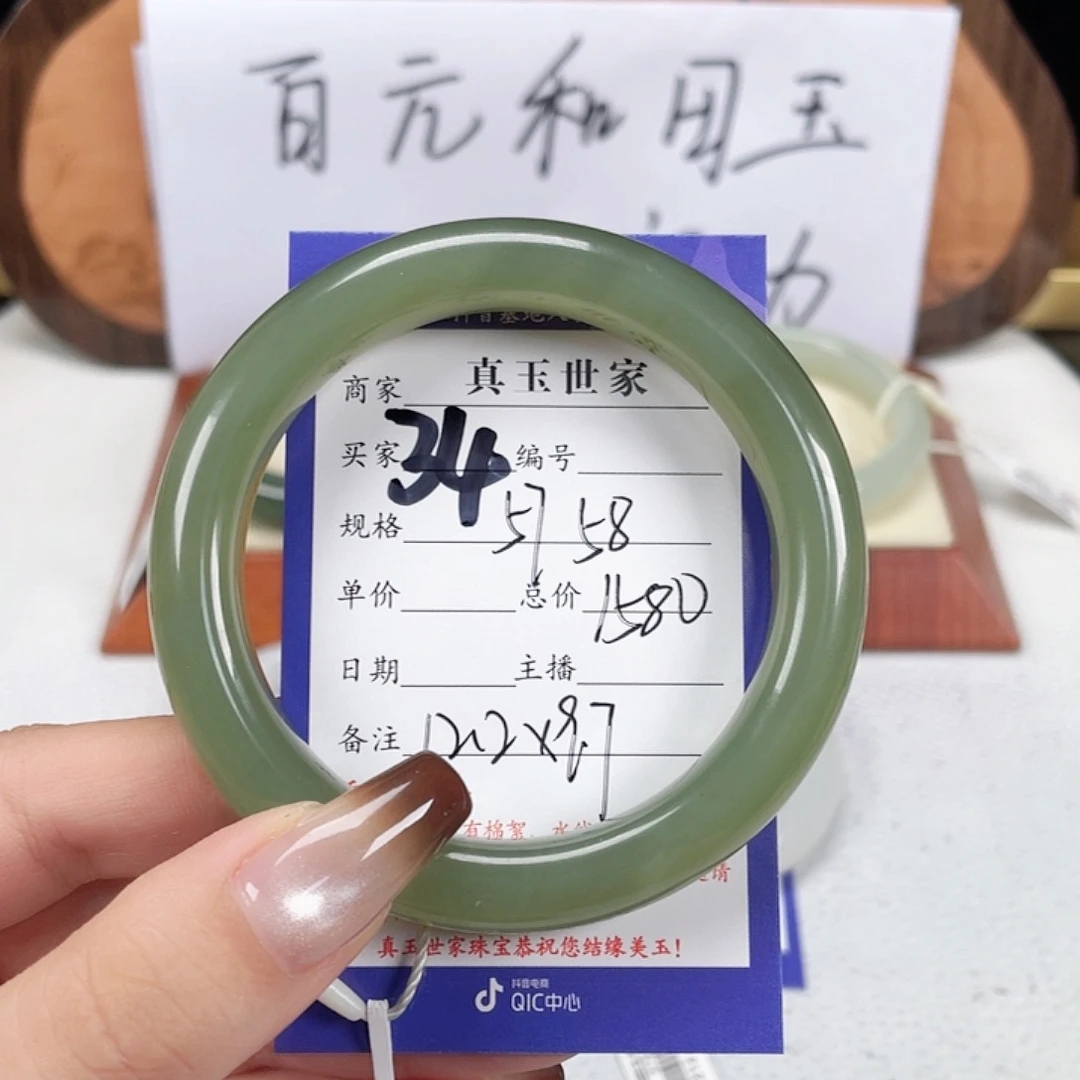 百元和田玉
力
真玉世家
商家
买家 34 编号
规格 57 58
单价 总价 1580
日期 主播
备注 12.2×9.7
有棉絮
请
真玉世家珠宝恭祝您结缘美玉!
抖音电商
QIC中心